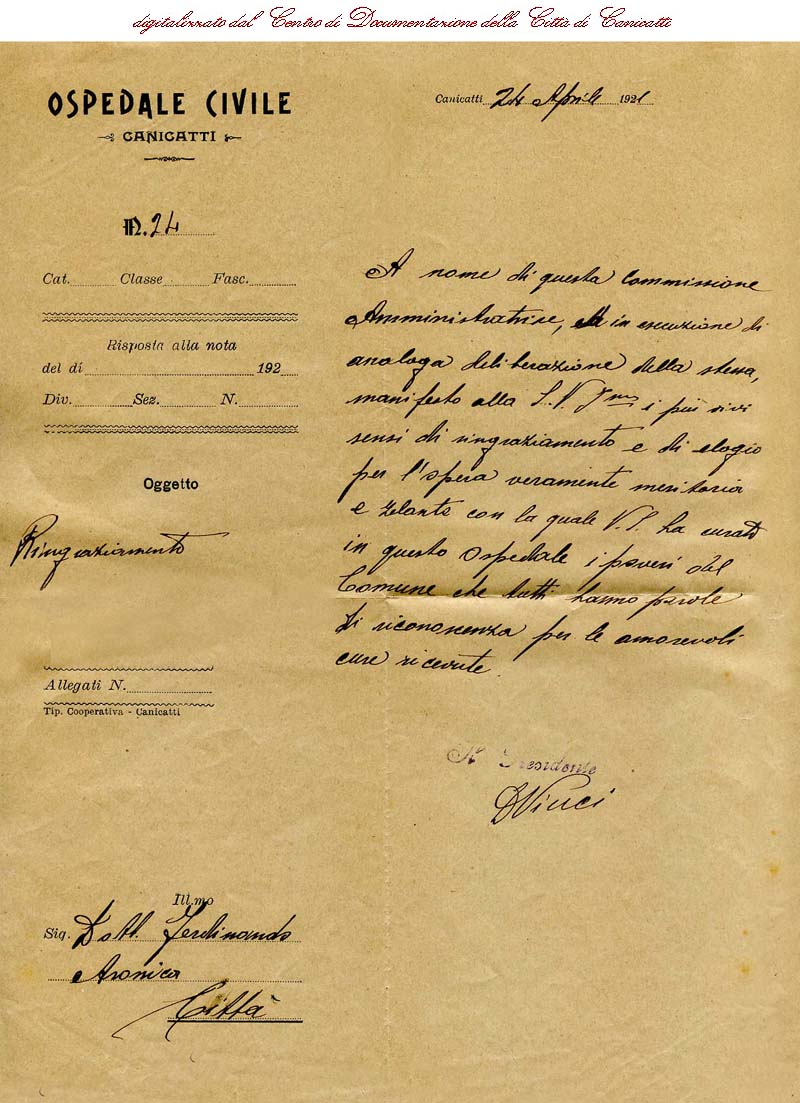 digitalizzato dal Centro di Documentazione della Città di Canicattì
OSPEDALE CIVILE
CANICATTI
N. 24
Cat. Classe Fasc.
Risposta alla nota
del dí 192
Div. Sez. N.
Oggetto
Ringraziamento
Allegati N.
Tip. Cooperativa - Canicatti
Ill.mo
Sig. Dott. Ferdinando
Aronica
Città
Canicatti 24 Aprile 1921
A nome di questa Commissione
Amministratrice, in esecuzione di
analoga deliberazione della stessa,
manifesto alla S. V. Ima i più vivi
sensi di ringraziamento e di elogio
per l'opera veramente meritoria
e zelante con la quale V. S. ha curato
in questo ospedale i poveri del
Comune che tutti hanno parole
di riconoscenza per le amorevoli
cure ricevute.
Il Presidente
Vinci